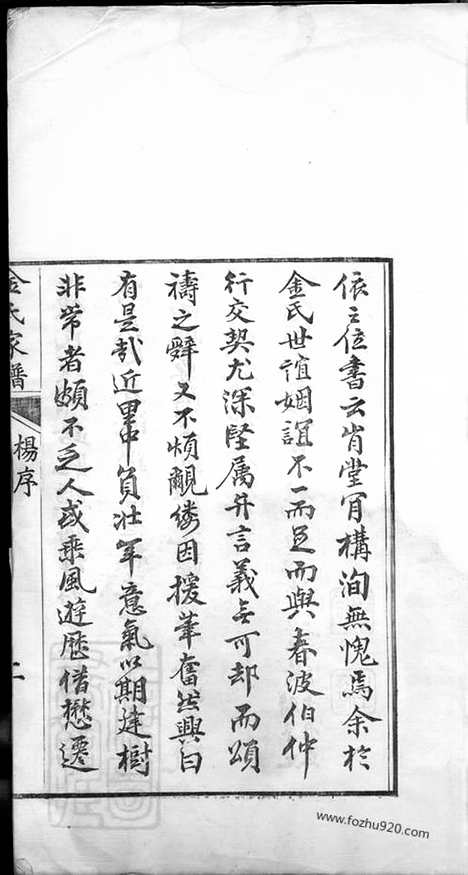 依之位書云肯堂肯構洵無愧焉余於
金氏世誼姻誼不一而足而與春波伯仲
行交契尤深堅属弁言義無可却而頌
禱之辭又不煩覼缕因援筆奮然興曰
有是哉近里中負壯年意氣以期建樹
非常者頗不乏人或乘風遊歷借懋遷
金氏家譜
楊序
二
www.fozhu920.com